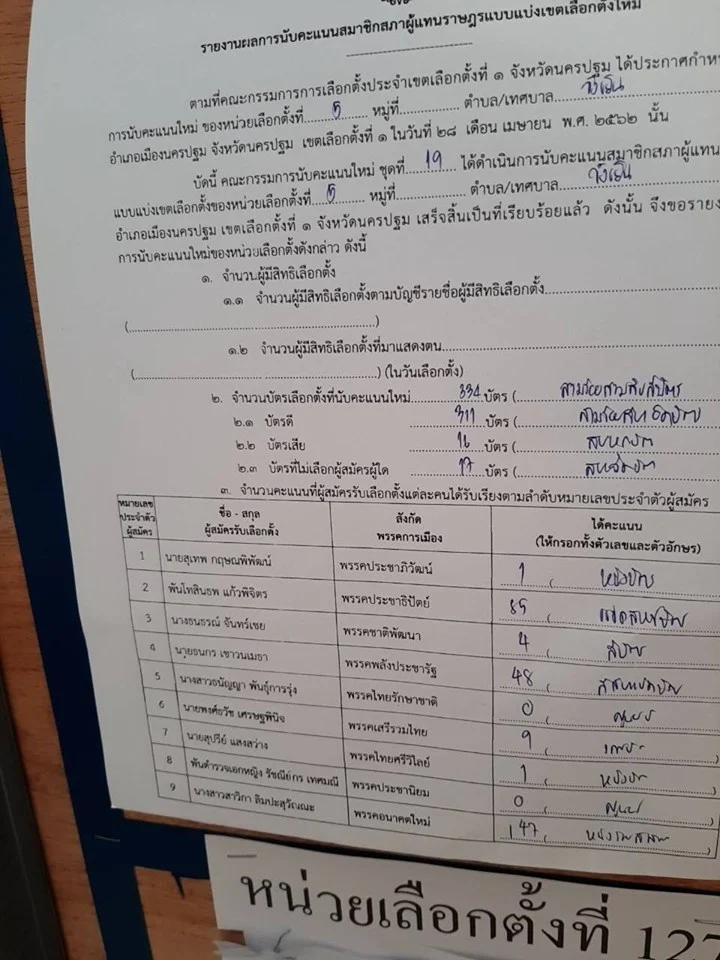 รายงานผลการนับคะแนนสมาชิกสภาผู้แทนราษฎรแบบแบ่งเขตเลือกตั้งใหม่
ตามที่คณะกรรมการการเลือกตั้งประจำเขตเลือกตั้งที่ ๑ จังหวัดนครปฐม ได้ประกาศกำหน
การนับคะแนนใหม่ ของหน่วยเลือกตั้งที่ 5 หมู่ที่ ตำบล/เทศบาล วังเย็น
อำเภอเมืองนครปฐม จังหวัดนครปฐม เขตเลือกตั้งที่ ๑ ในวันที่ ๒๘ เดือน เมษายน พ.ศ. ๒๕๖๒ นั้น
บัดนี้ คณะกรรมการนับคะแนนใหม่ ชุดที่ 19 ได้ดำเนินการนับคะแนนสมาชิกสภาผู้แทน
แบบแบ่งเขตเลือกตั้งของหน่วยเลือกตั้งที่ 5 หมู่ที่ ตำบล/เทศบาล วังเย็น
อำเภอเมืองนครปฐม เขตเลือกตั้งที่ ๑ จังหวัดนครปฐม เสร็จสิ้นเป็นที่เรียบร้อยแล้ว ดังนั้น จึงขอรายง
การนับคะแนนใหม่ของหน่วยเลือกตั้งดังกล่าว ดังนี้
๑. จำนวนผู้มีสิทธิเลือกตั้ง
๑.๑ จำนวนผู้มีสิทธิเลือกตั้งตามบัญชีรายชื่อผู้มีสิทธิเลือกตั้ง
(...)
๑.๒ จำนวนผู้มีสิทธิเลือกตั้งที่มาแสดงตน
(...) (ในวันเลือกตั้ง)
๒. จำนวนบัตรเลือกตั้งที่นับคะแนนใหม่ 334 บัตร (
๒.๑ บัตรดี 311 บัตร (
๒.๒ บัตรเสีย 16 บัตร (
๒.๓ บัตรที่ไม่เลือกผู้สมัครผู้ใด 17 บัตร (
๓. จำนวนคะแนนที่ผู้สมัครรับเลือกตั้งแต่ละคนได้รับเรียงตามลำดับหมายเลขประจำตัวผู้สมัคร
หมายเลขประจำตัวผู้สมัคร ชื่อ - สกุล ผู้สมัครรับเลือกตั้ง สังกัดพรรคการเมือง ได้คะแนน (ให้กรอกทั้งตัวเลขและตัวอักษร)
1 นายสุเทพ กฤษณพิพัฒน์ พรรคประชาภิวัฒน์ 1 ( หนึ่งบัตร
2 พันโทสินธพ แก้วพิจิตร พรรคประชาธิปัตย์ 85 ( แปดสิบห้าบัตร
3 นางธนธรณ์ จันทร์เชย พรรคชาติพัฒนา 4 ( สี่บัตร
4 นายธนกร เชาวนเมธา พรรคพลังประชารัฐ 48 ( สี่สิบแปดบัตร
5 นางสาวธนัญญา พันธุ์การรุ่ง พรรคไทยรักษาชาติ 0 (
6 นายพงศ์ธวัช เศรษฐพินิจ พรรคเสรีรวมไทย 9 (
7 นายสุปรีย์ แสงสว่าง พรรคไทยศรีวิไลย์ 1 (
8 พันตำรวจเอกหญิง รัชณีย์กร เทศมณี พรรคประชานิยม 0 (
9 นางสาวสาวิกา ลิมปะสุวัณณะ พรรคอนาคตใหม่ 147 (
หน่วยเลือกตั้งที่ 127